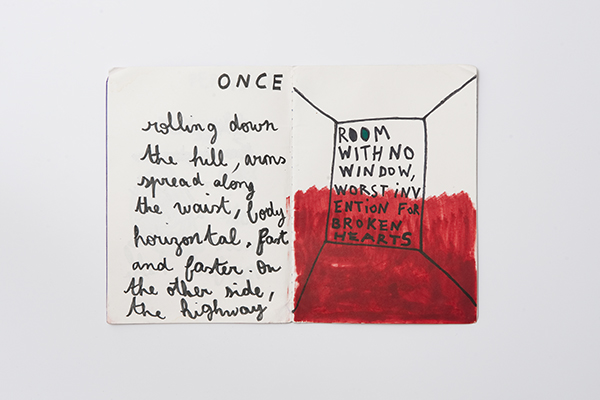 ONCE
rolling down
the hill, arms
spread along
the waist, body
horizontal, fast
and faster. On
the other side,
the highway
ROOM
WITH NO
WINDOW,
WORST INV
ENTION FOR
BROKEN
HEARTS